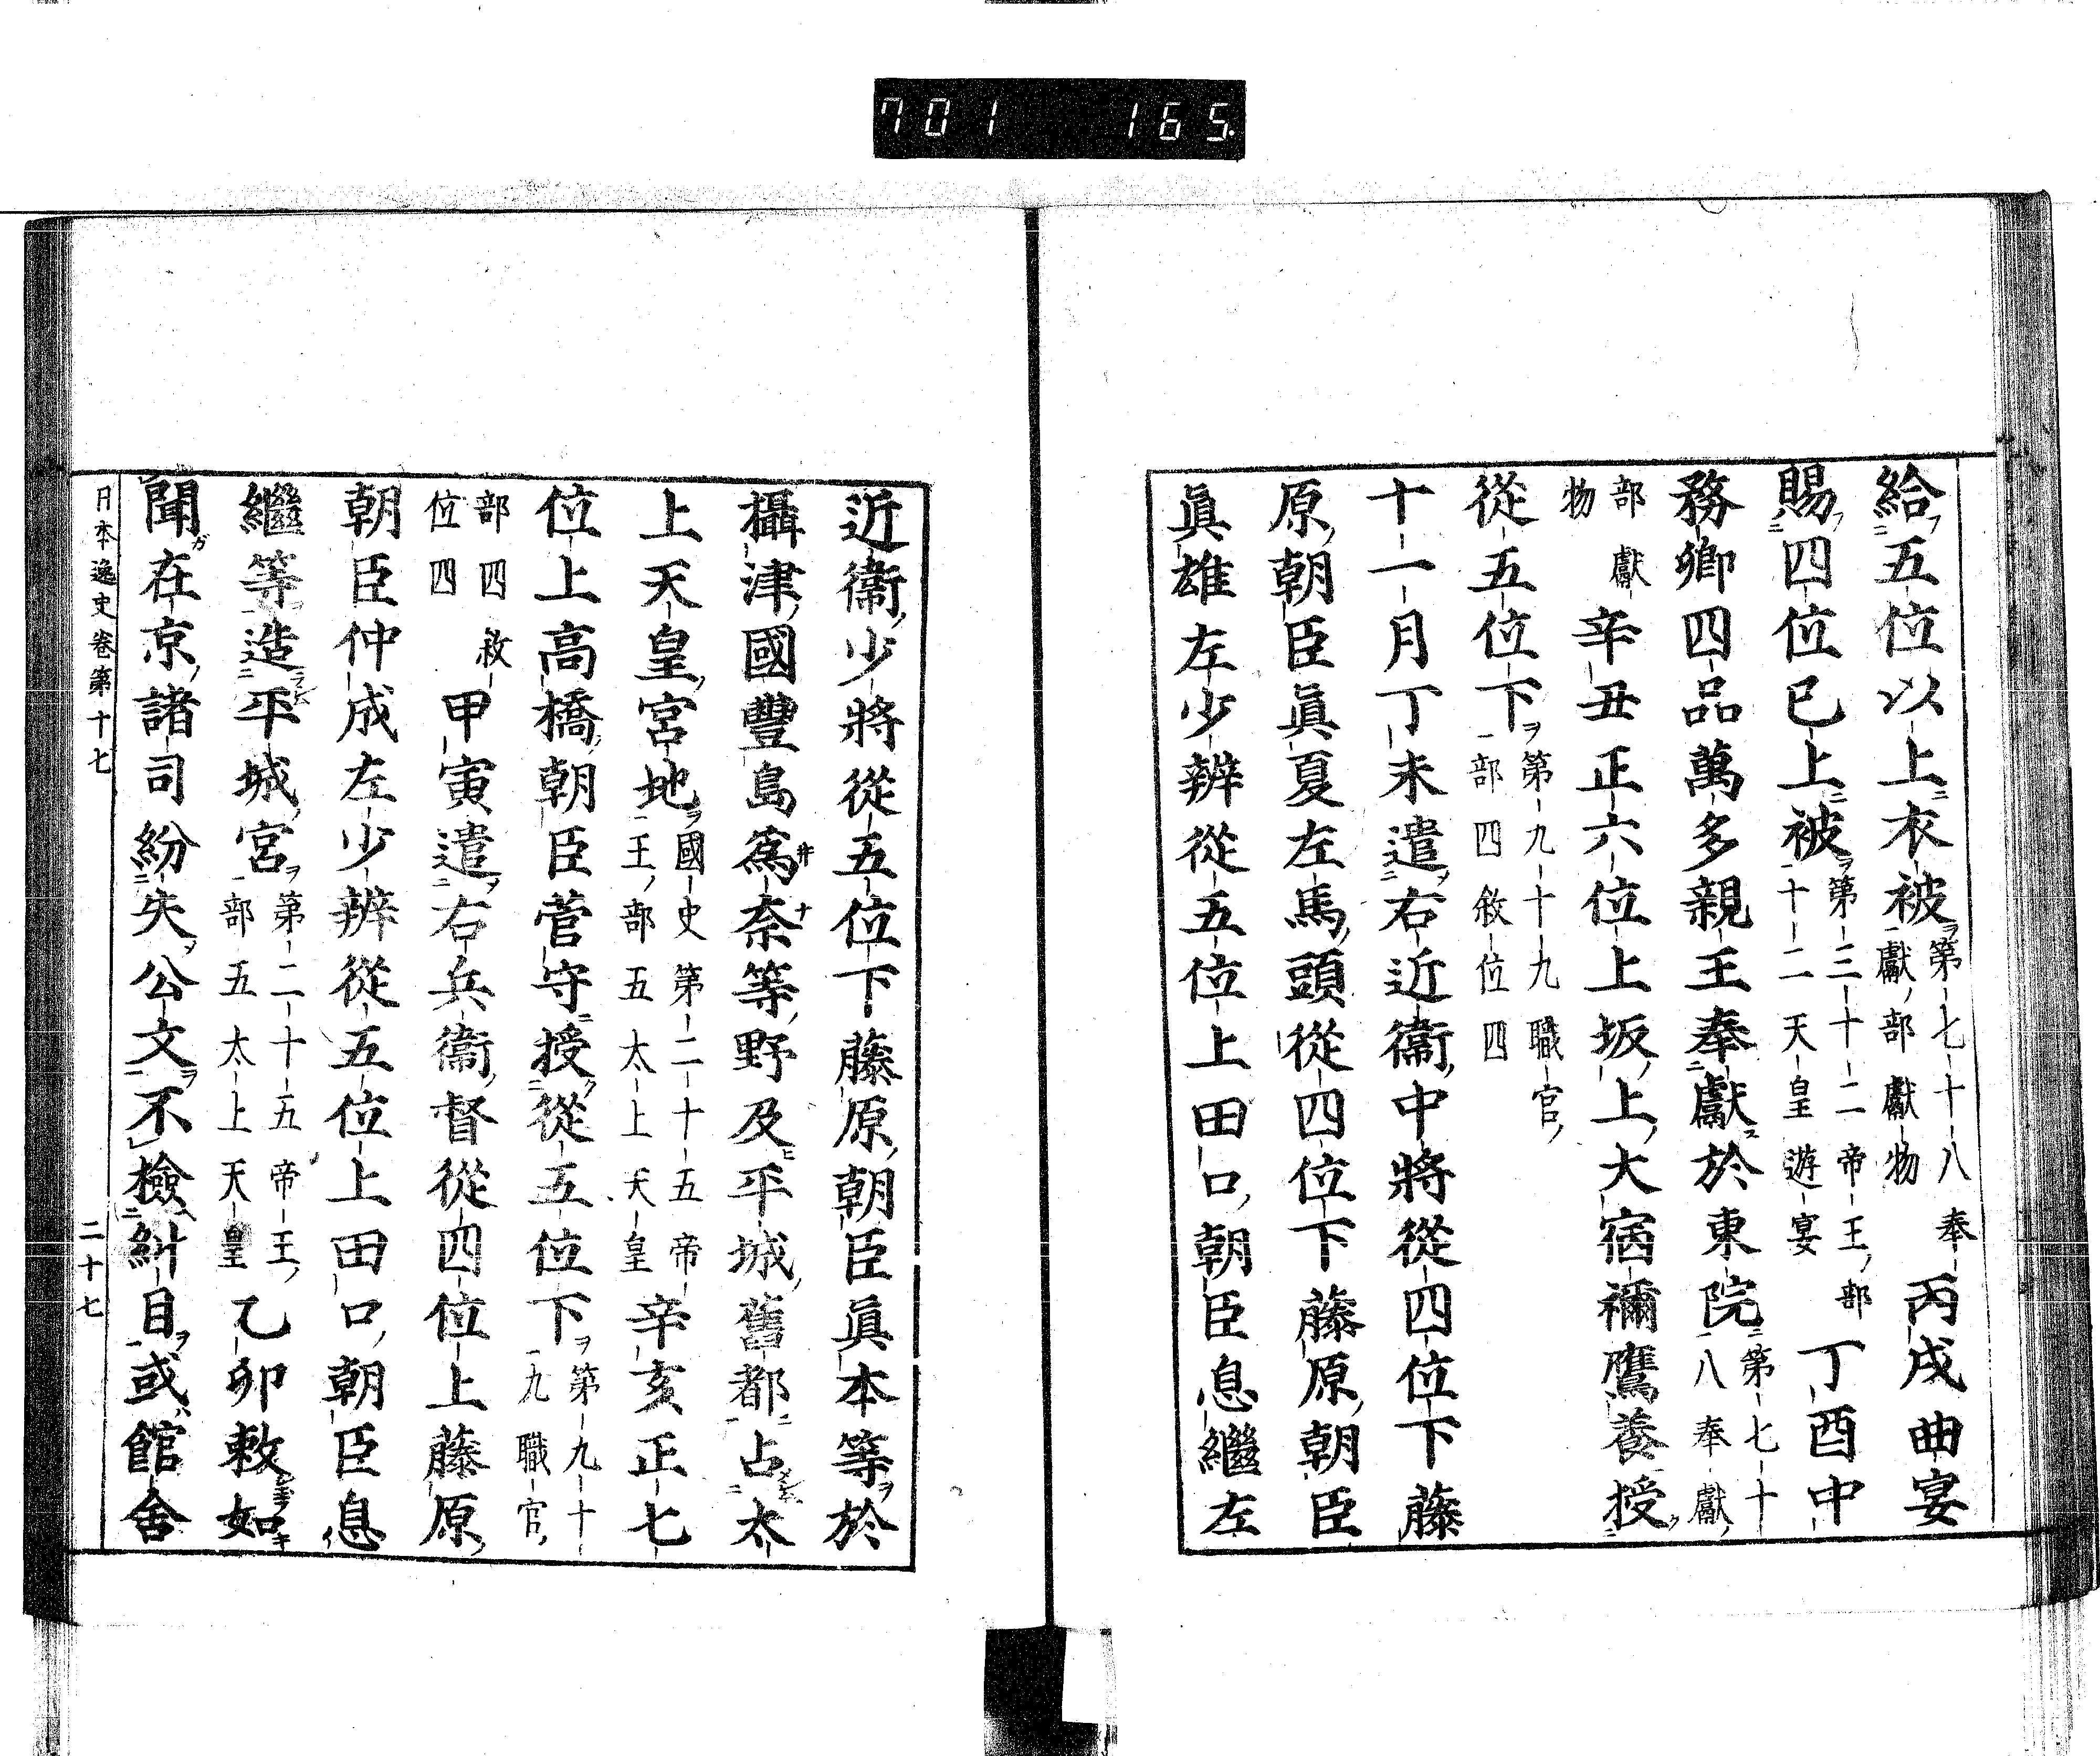 701 165.
給五位以上衣被第七十八奉獻部獻物丙戌曲宴
賜四位已上被第三十二帝王部十二天皇遊宴丁酉中
務卿四品萬多親王奉獻於東院第七十八奉獻
部獻物辛丑正六位上坂上大宿禰鷹養授
從五位下第九十九職官部四敘位四
十一月丁未遣右近衞中將從四位下藤
原朝臣眞夏左馬頭從四位下藤原朝臣
眞雄左少辨從五位上田口朝臣息繼左
近衞少將從五位下藤原朝臣眞本等於
攝津國豐島爲奈等野及平城舊都占太
上天皇宮地國史第二十五帝王部五太上天皇辛亥正七
位上高橋朝臣菅守授從五位下第九十九職官
部四敘位四甲寅遣右兵衞督從四位上藤原
朝臣仲成左少辨從五位上田口朝臣息
繼等造平城宮第二十五帝王部五太上天皇乙卯敕如
聞在京諸司紛失公文不檢糾目或館舍
日本逸史卷第十七 二十七